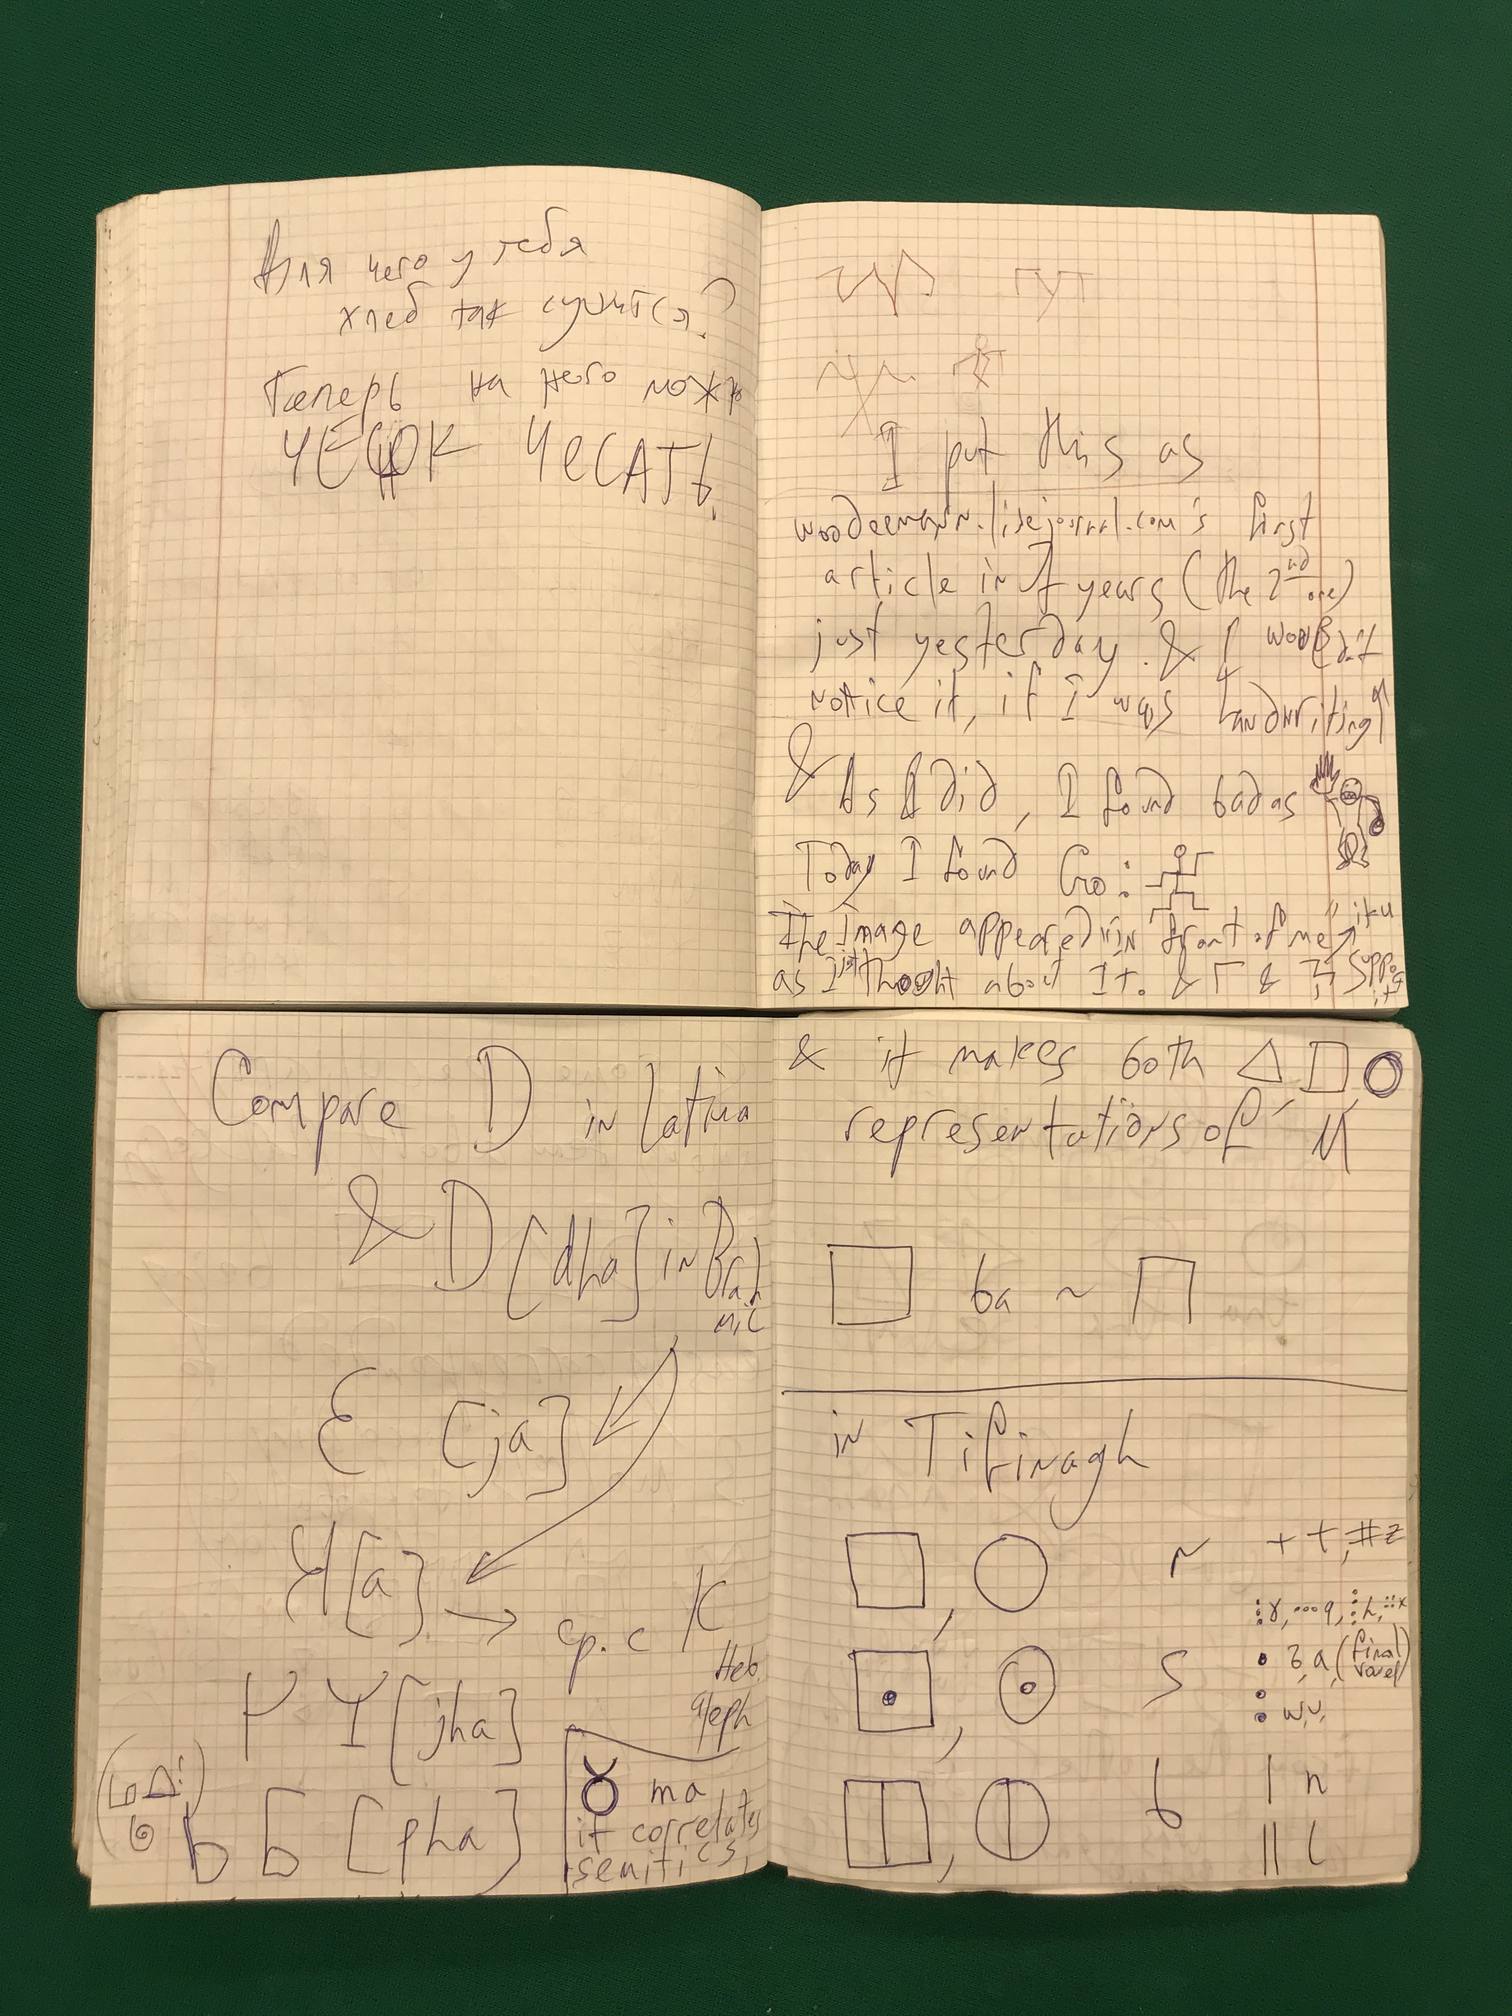 Для чего у тебя
хлеб так сушится?
Теперь на него можно
ЧЕСНОК ЧЕСАТЬ.
ГУП
I put this as
woodeemann.livejournal.com's first
article in 7 years (the 2nd one)
just yesterday & I
notice it, if I was handwriting
& As I did, I found bad as
Today I found Go:
The Image appeared in front of me
as I just thought about It. & Г &
Compare D in Latin
& D [dha] in Brahmic
Ɛ [ja]
[a]
ср. с K
Heb. aleph
[jha]
Ь Б [pha]
♉ ma
it correlates
semitics,
& it makes both △ □ ○
representations of M
□ ba ~ П
in Tifinagh
□, ○ r + t, # z
⊡, ⊙ s • з, a, (final vowel)
: w, u,
b | n
|| l